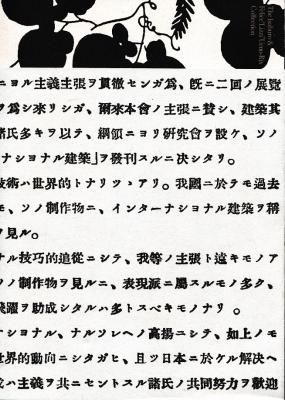 The Isaburo &
ニヨル主義主張ヲ貫徹センガ爲、旣ニ二回ノ展覽
ヲ爲シ來リシガ、爾來本會ノ主張ニ贊シ、建築其
諸氏多キヲ以テ、綱領ニヨリ研究會ヲ設ケ、ソノ
ナショナル建築」ヲ發刊スルニ決シタリ。
技術ハ世界的トナリツヽアリ。我國ニ於テモ過去
モ、ソノ制作物ニ、インターナショナル建築ヲ稱
ヲ見ル。
ナル技巧的追從ニシテ、我等ノ主張ト遠キモノア
ソノ制作物ヲ見ルニ、表現派ニ屬スルモノ多ク、
飛躍ヲ助成シタルハ多トスベキモノナリ。
ナショナル、ナルソレヘノ高揚ニシテ、如上ノモ
世界的動向ニシタガヒ、且ツ日本ニ於ケル解決ヘ
ハ主義ヲ共ニセントスル諸氏ノ共同努力ヲ歡迎